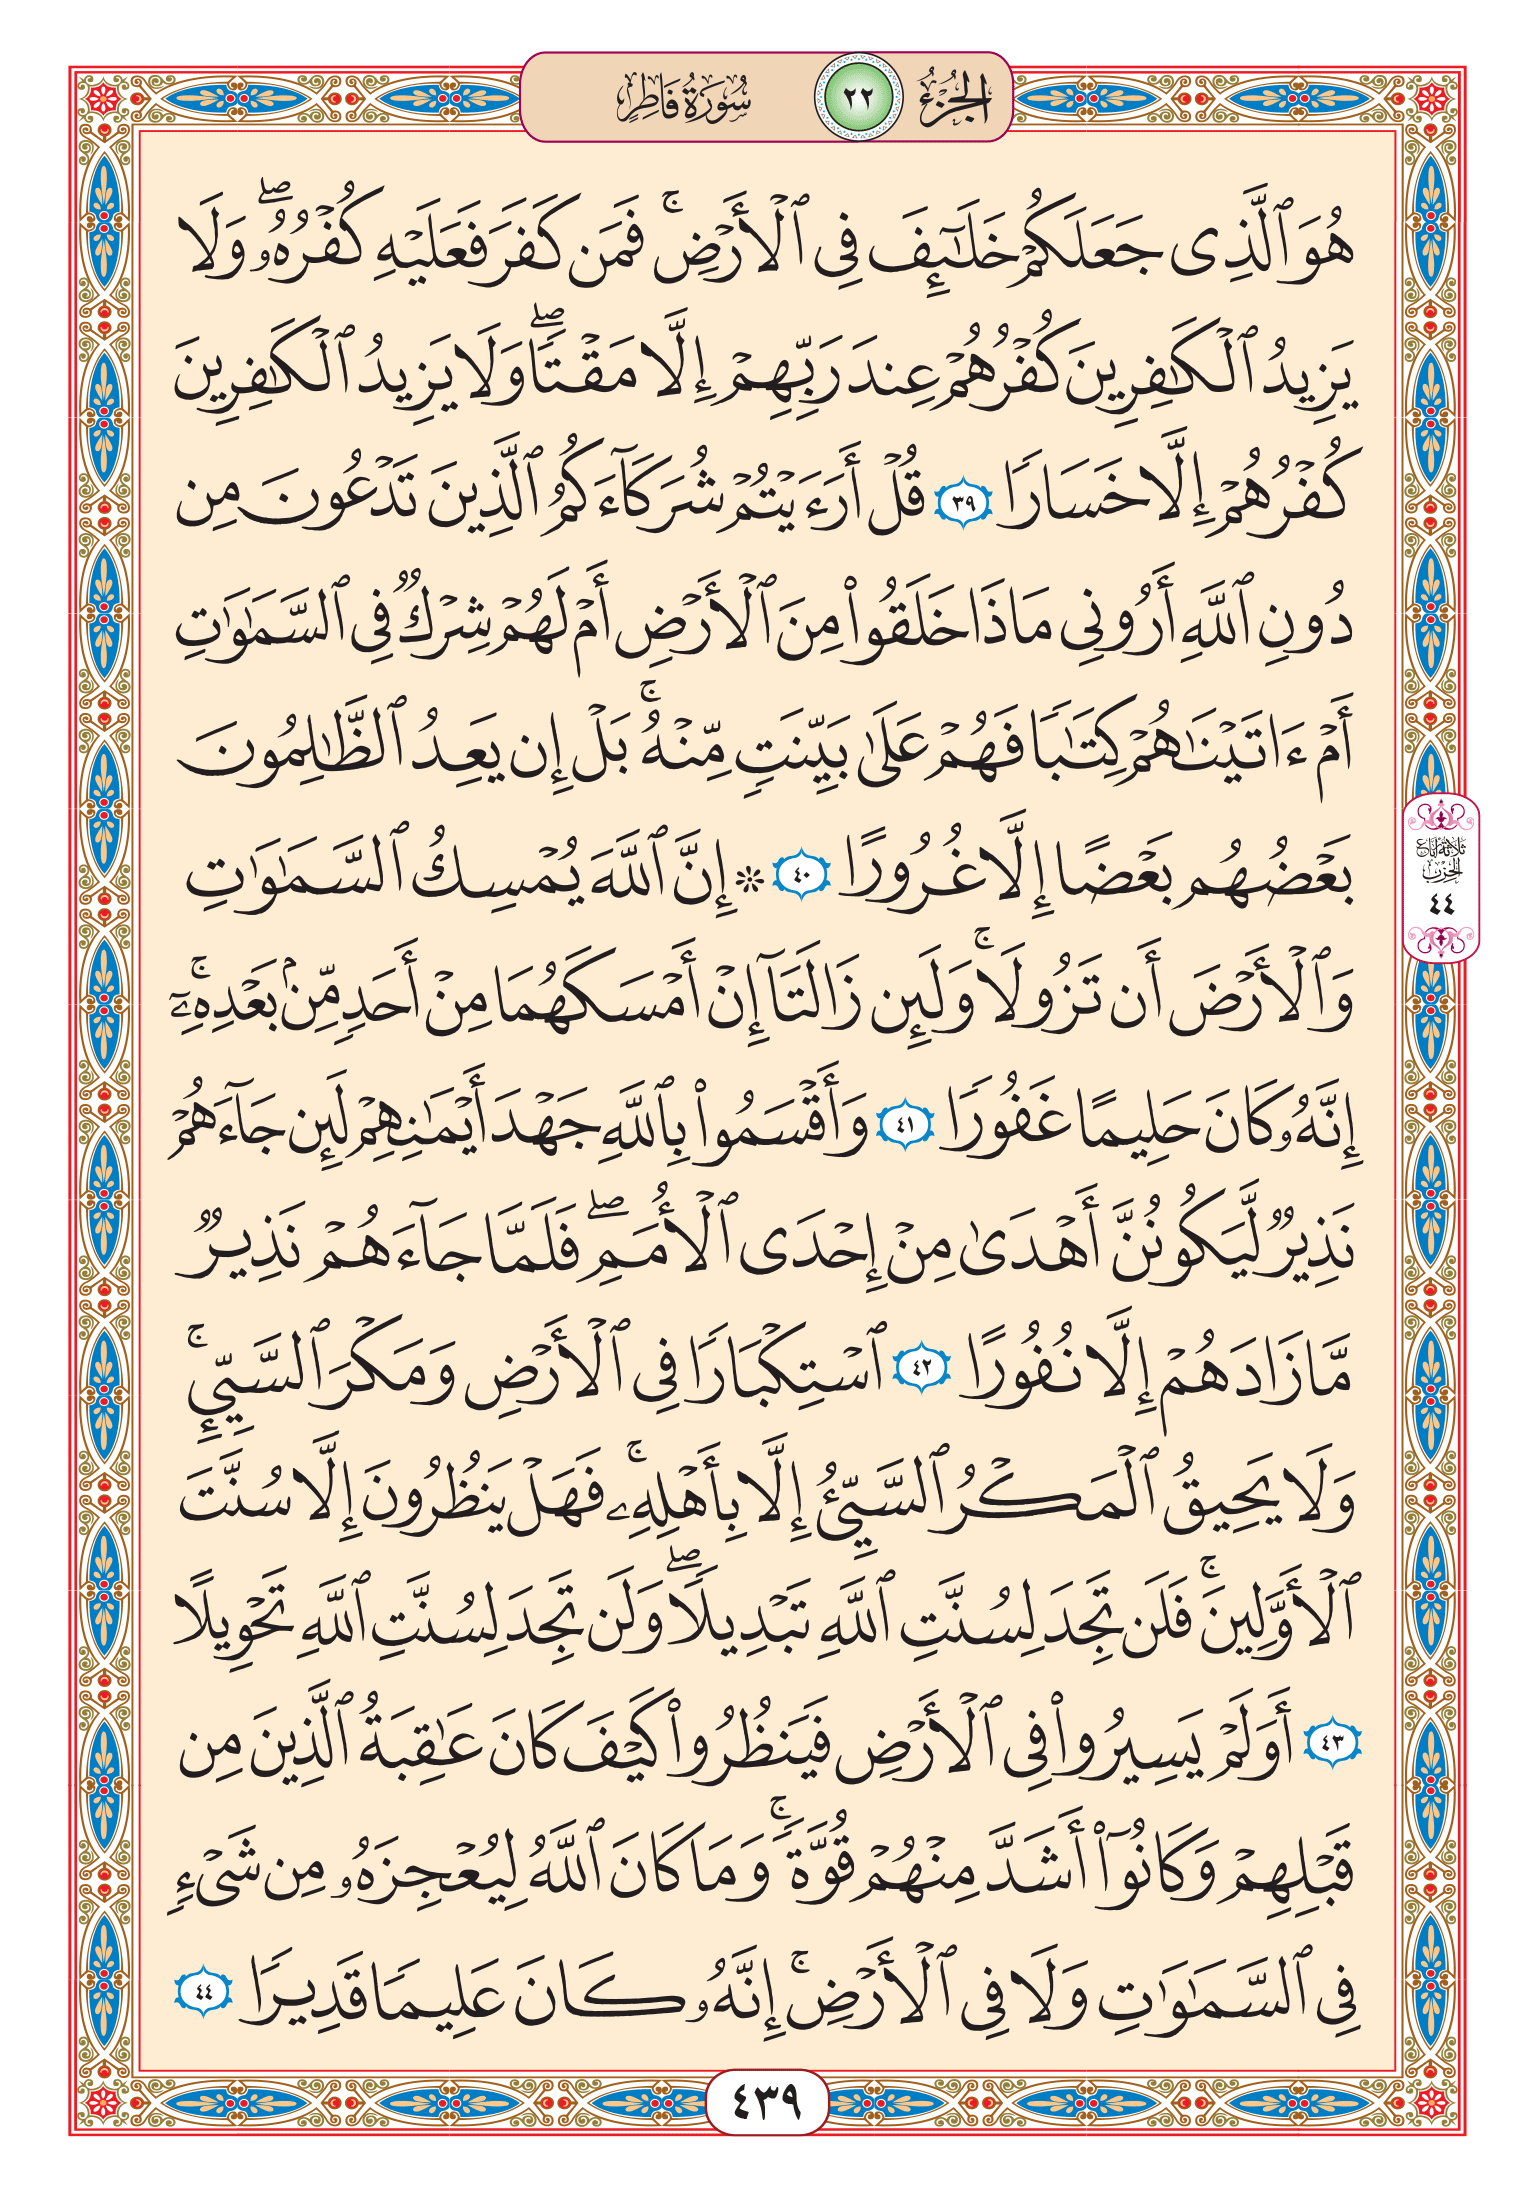 الجزء ٢٢ سورة فاطر
هُوَ ٱلَّذِى جَعَلَكُمْ خَلَٰٓئِفَ فِى ٱلْأَرْضِ ۚ فَمَن كَفَرَ فَعَلَيْهِ كُفْرُهُۥ ۖ وَلَا
يَزِيدُ ٱلْكَٰفِرِينَ كُفْرُهُمْ عِندَ رَبِّهِمْ إِلَّا مَقْتًا ۖ وَلَا يَزِيدُ ٱلْكَٰفِرِينَ
كُفْرُهُمْ إِلَّا خَسَارًا ٣٩ قُلْ أَرَءَيْتُمْ شُرَكَآءَكُمُ ٱلَّذِينَ تَدْعُونَ مِن
دُونِ ٱللَّهِ أَرُونِى مَاذَا خَلَقُوا۟ مِنَ ٱلْأَرْضِ أَمْ لَهُمْ شِرْكٌ فِى ٱلسَّمَٰوَٰتِ
أَمْ ءَاتَيْنَٰهُمْ كِتَٰبًا فَهُمْ عَلَىٰ بَيِّنَتٍ مِّنْهُ ۚ بَلْ إِن يَعِدُ ٱلظَّٰلِمُونَ
بَعْضُهُم بَعْضًا إِلَّا غُرُورًا ٤٠ ۞ إِنَّ ٱللَّهَ يُمْسِكُ ٱلسَّمَٰوَٰتِ
وَٱلْأَرْضَ أَن تَزُولَا ۚ وَلَئِن زَالَتَآ إِنْ أَمْسَكَهُمَا مِنْ أَحَدٍ مِّنۢ بَعْدِهِۦٓ ۚ
إِنَّهُۥ كَانَ حَلِيمًا غَفُورًا ٤١ وَأَقْسَمُوا۟ بِٱللَّهِ جَهْدَ أَيْمَٰنِهِمْ لَئِن جَآءَهُمْ
نَذِيرٌ لَّيَكُونُنَّ أَهْدَىٰ مِنْ إِحْدَى ٱلْأُمَمِ ۖ فَلَمَّا جَآءَهُمْ نَذِيرٌ
مَّا زَادَهُمْ إِلَّا نُفُورًا ٤٢ ٱسْتِكْبَارًا فِى ٱلْأَرْضِ وَمَكْرَ ٱلسَّيِّئِ ۚ
وَلَا يَحِيقُ ٱلْمَكْرُ ٱلسَّيِّئُ إِلَّا بِأَهْلِهِۦ ۚ فَهَلْ يَنظُرُونَ إِلَّا سُنَّتَ
ٱلْأَوَّلِينَ ۚ فَلَن تَجِدَ لِسُنَّتِ ٱللَّهِ تَبْدِيلًا ۖ وَلَن تَجِدَ لِسُنَّتِ ٱللَّهِ تَحْوِيلًا
٤٣ أَوَلَمْ يَسِيرُوا۟ فِى ٱلْأَرْضِ فَيَنظُرُوا۟ كَيْفَ كَانَ عَٰقِبَةُ ٱلَّذِينَ مِن
قَبْلِهِمْ وَكَانُوٓا۟ أَشَدَّ مِنْهُمْ قُوَّةً ۚ وَمَا كَانَ ٱللَّهُ لِيُعْجِزَهُۥ مِن شَىْءٍ
فِى ٱلسَّمَٰوَٰتِ وَلَا فِى ٱلْأَرْضِ ۚ إِنَّهُۥ كَانَ عَلِيمًا قَدِيرًا ٤٤
ثلاثة أرباع
الحزب
٤٤
٤٣٩